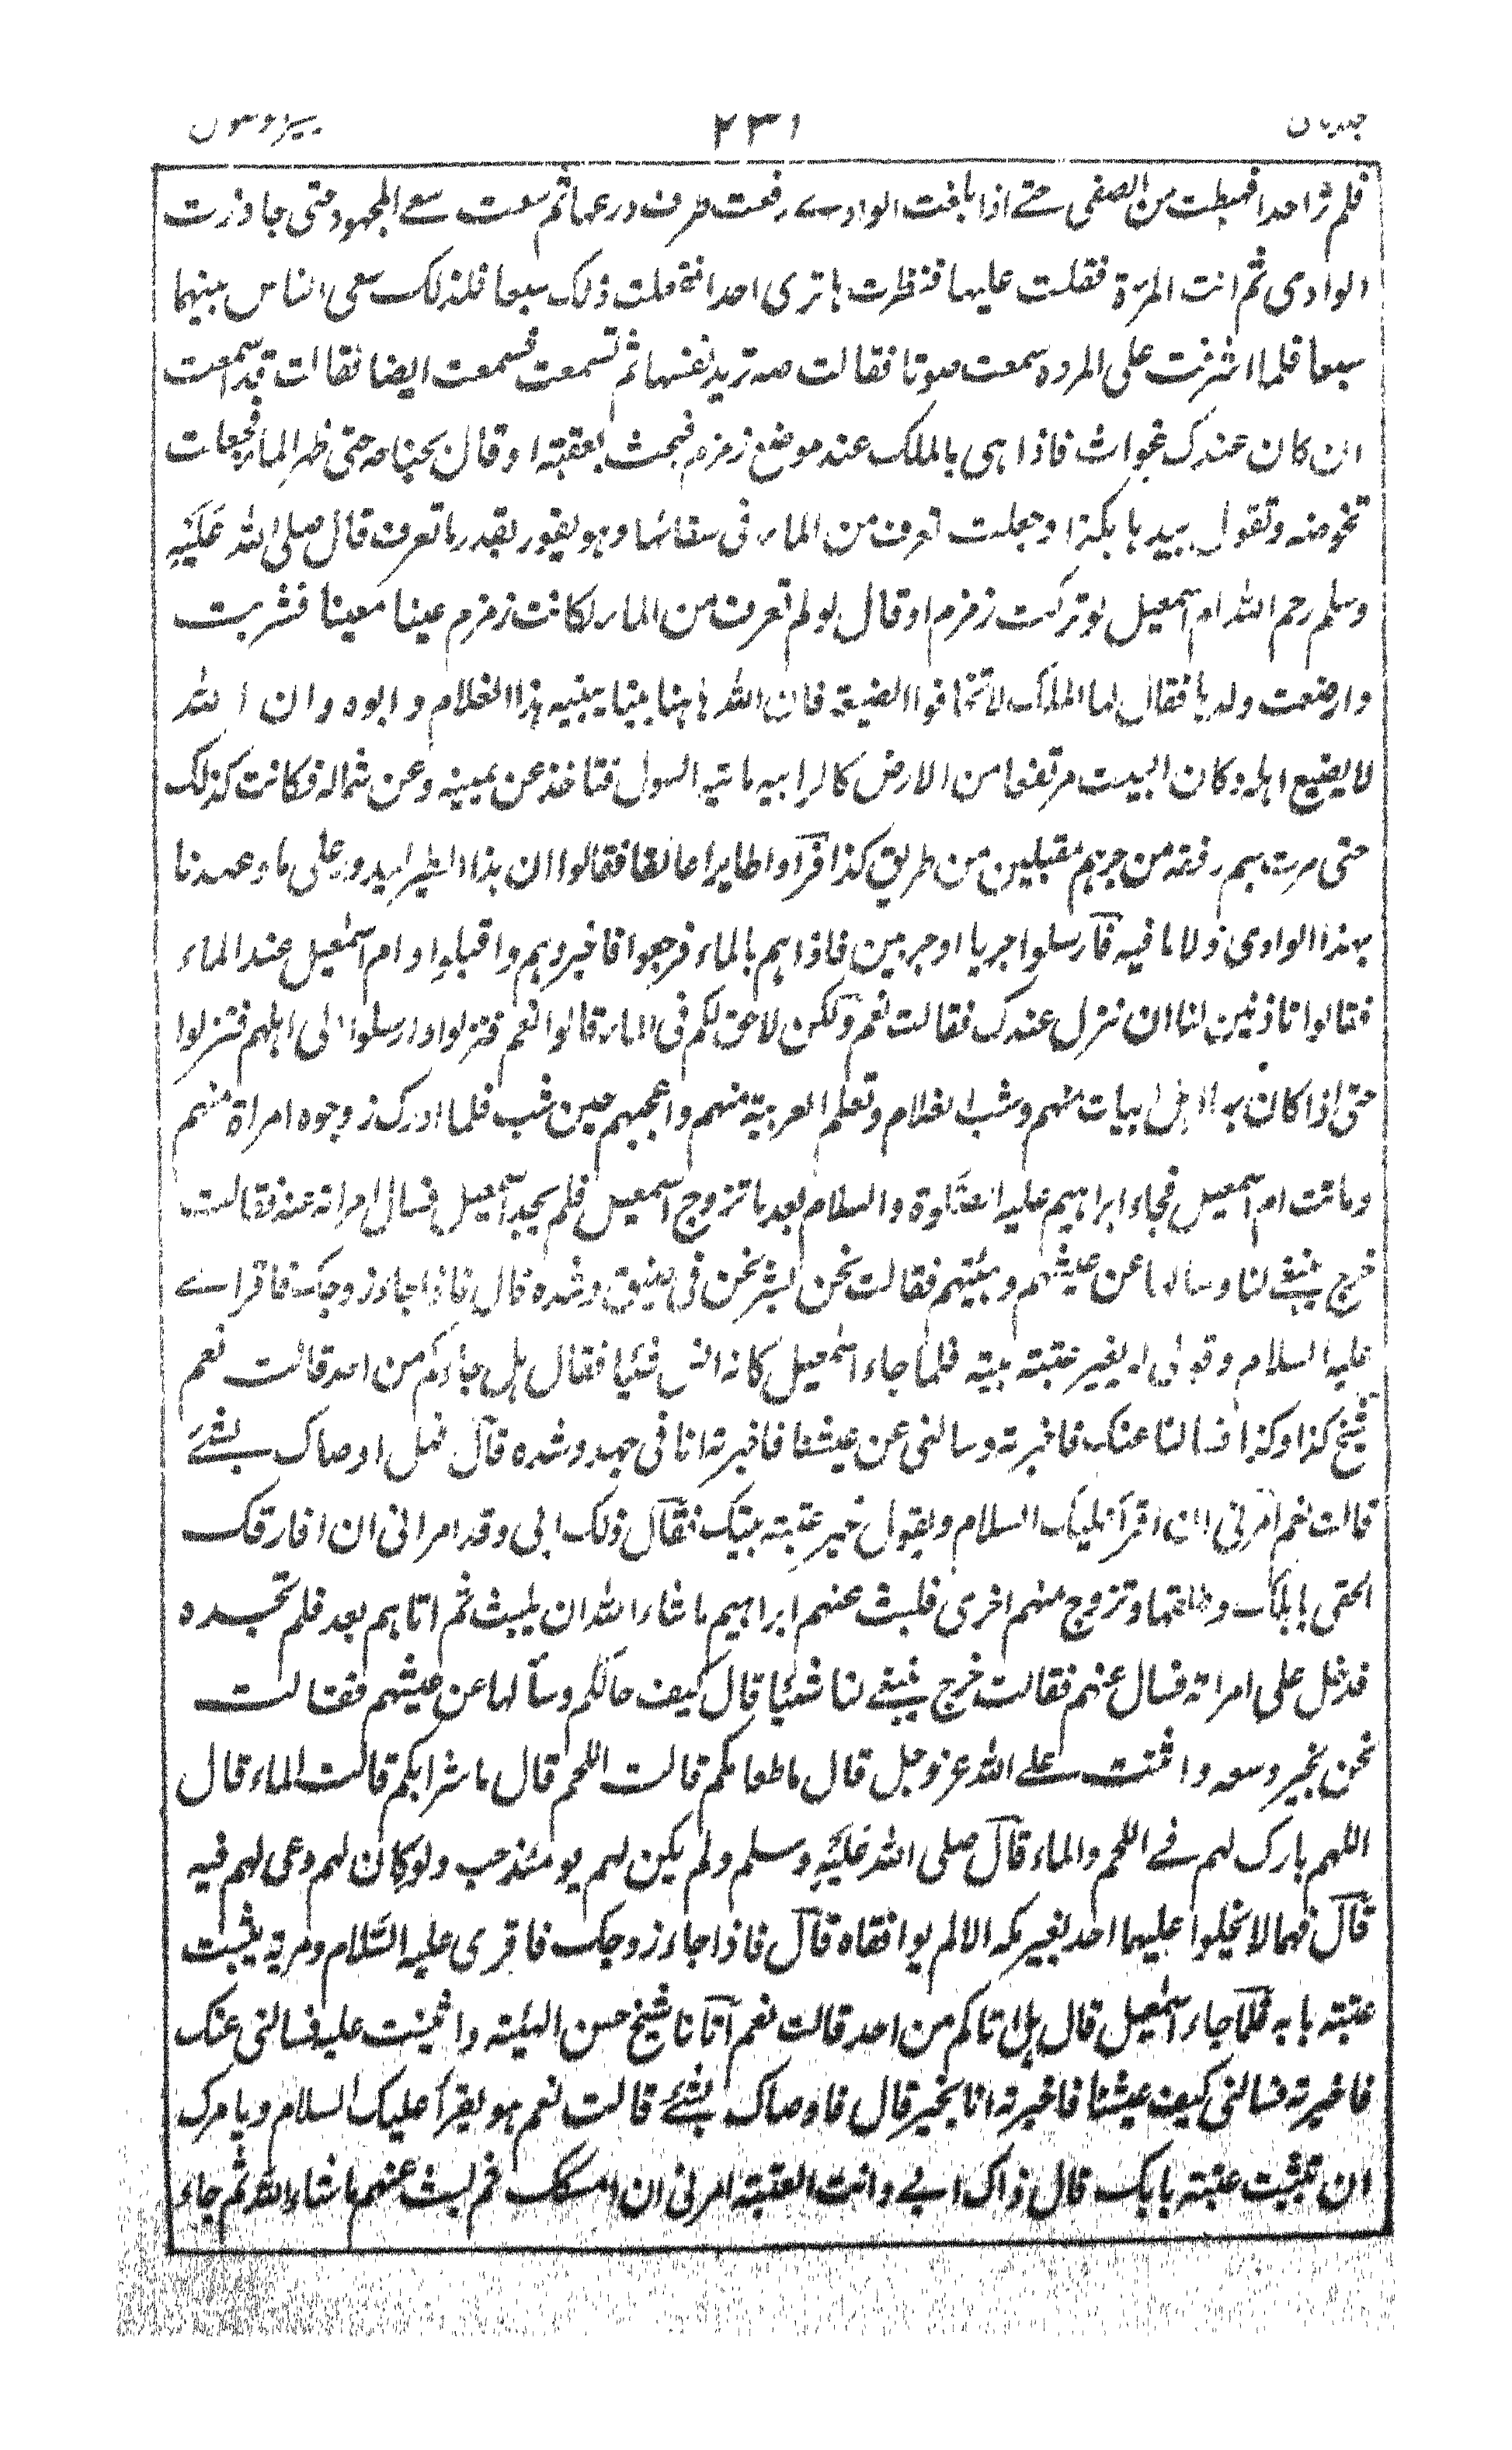 ٢٣١
فلم تر احدا فهبطت من الصفى حتے اذا بلغت الوادے رفعت طرف درعها ثم سعت سعے المجهود حتى جاوزت
الوادى ثم اتت المروة فقلت عليها فنظرت هل ترى احدا ففعلت ذلك سبعا فلذلك سعى الناس بينهما
سبعا فلما اشرفت على المروه سمعت صوتا فقالت صه تريد نفسها ثم تسمعت فسمعت ايضا فقالت قد اسمعت
ان كان عندك غواث فاذا هى بالملك عند موضع زمزم فبحث بعقبه او قال بجناحه حتى ظهر الماء فجعلت
تحوضه وتقول بيدها هكذا وجعلت تعرف من الماء فى سقائها وهو يفور بقدر ما تعرف قال صلى الله عليه
وسلم رحم الله ام اسمعيل لو تركت زمزم او قال لو لم تعرف من الماء لكانت زمزم عينا معينا فشربت
وارضعت ولدها فقال لها الملك لا تخافوا الضيعة فان الله هاهنا بيتا يبنيه هذا الغلام وابوه وان الله
لا يضيع اهله وكان البيت مرتفعا من الارض كالرابيه ياتيه السول فتاخذ عن يمينه وعن شماله فكانت كذلك
حتى مرت بهم رفقه من جرهم مقبلين من طريق كذا فرآوا طايرا عائفا فقالوا ان هذا الطير ليدور على ما وعهدنا
بهذا الوادى ولا ما فيه فآرسلوا جريا او جريين فاذا هم بالماء فرجعوا فاخبروهم واقبلوا وام اسمعيل عند الماء
فقالوا تاذنين لنا ان ننزل عندك فقالت نعم ولكن لا حق لكم فى الماء قالوا نعم فنزلوا وارسلوا الى اهلهم فنزلوا
حتى اذا كان بها اهل ابيات منهم وشب الغلام وتعلم العربية منهم واعجبهم حين شب فلما ادرك زوجوه امراة منهم
وماتت ام اسمعيل فجاء ابراهيم عليه الصلوة والسلام بعد ما تزوج اسمعيل فلم يجد اسمعيل فسال امراته عنه فقالت
خرج يبتغے لنا وسالها عن عيشهم وهيئتهم فقالت نحن بشر نحن فى ضيق وشده قال فاذا جاء زوجك فاقراے
عليه السلام وقولى له يغير عتبته بيته فلما جاء اسمعيل كانه انس شيئا فقال هل جاءكم من احد قالت نعم
شيخ كذا وكذا فسالنا عنك فاخبرته وسالنى عن عيشنا فاخبرته انا فى جهد وشده قال فهل اوصاك بشئے
قالت نعم امرنى ان اقرأ عليك السلام ويقول غير عتبته بيتك فقال ذلك ابى وقد امرانى ان افارقك
الحقى باهلك وطلقها وتزوج منهم اخرى فلبث عنهم ابراهيم ما شاء الله ان يلبث ثم اتاهم بعد فلم تجده
فدخل على امراته فسال عنهم فقالت خرج يبتغے لنا شيئا قال كيف حالكم وسألها عن عيشهم فقالت
نحن بخير وسعه واثنت علے الله عزوجل قال ما طعامكم قالت اللحم قال ما شرابكم قالت الماء قال
اللهم بارك لهم فے اللحم والماء قال صلى الله عليه وسلم ولم يكن لهم يومئذ حب ولو كان لهم دعى لهم فيه
قال فهما لا يخلوا عليهما احد بغير مكه الا لم يوافقاه قال فاذا جاء زوجك فاقرى عليه السلام ومريه يثبت
عتبته بابه فلما جاء اسمعيل قال هل اتاكم من احد قالت نعم آتانا شيخ حسن الهيئته واثنيت عليه فسالنى عنك
فاخبرته فسالنى كيف عيشنا فاخبرته انا بخير قال فاوصاك بشئے قالت نعم هو يقرأ عليك السلام ويامرك
ان تثبت عتبته بابك قال ذاك ابے وانت العتبته امرنى ان امسكك ثم لبث عنهم ما شاء الله ثم جاء